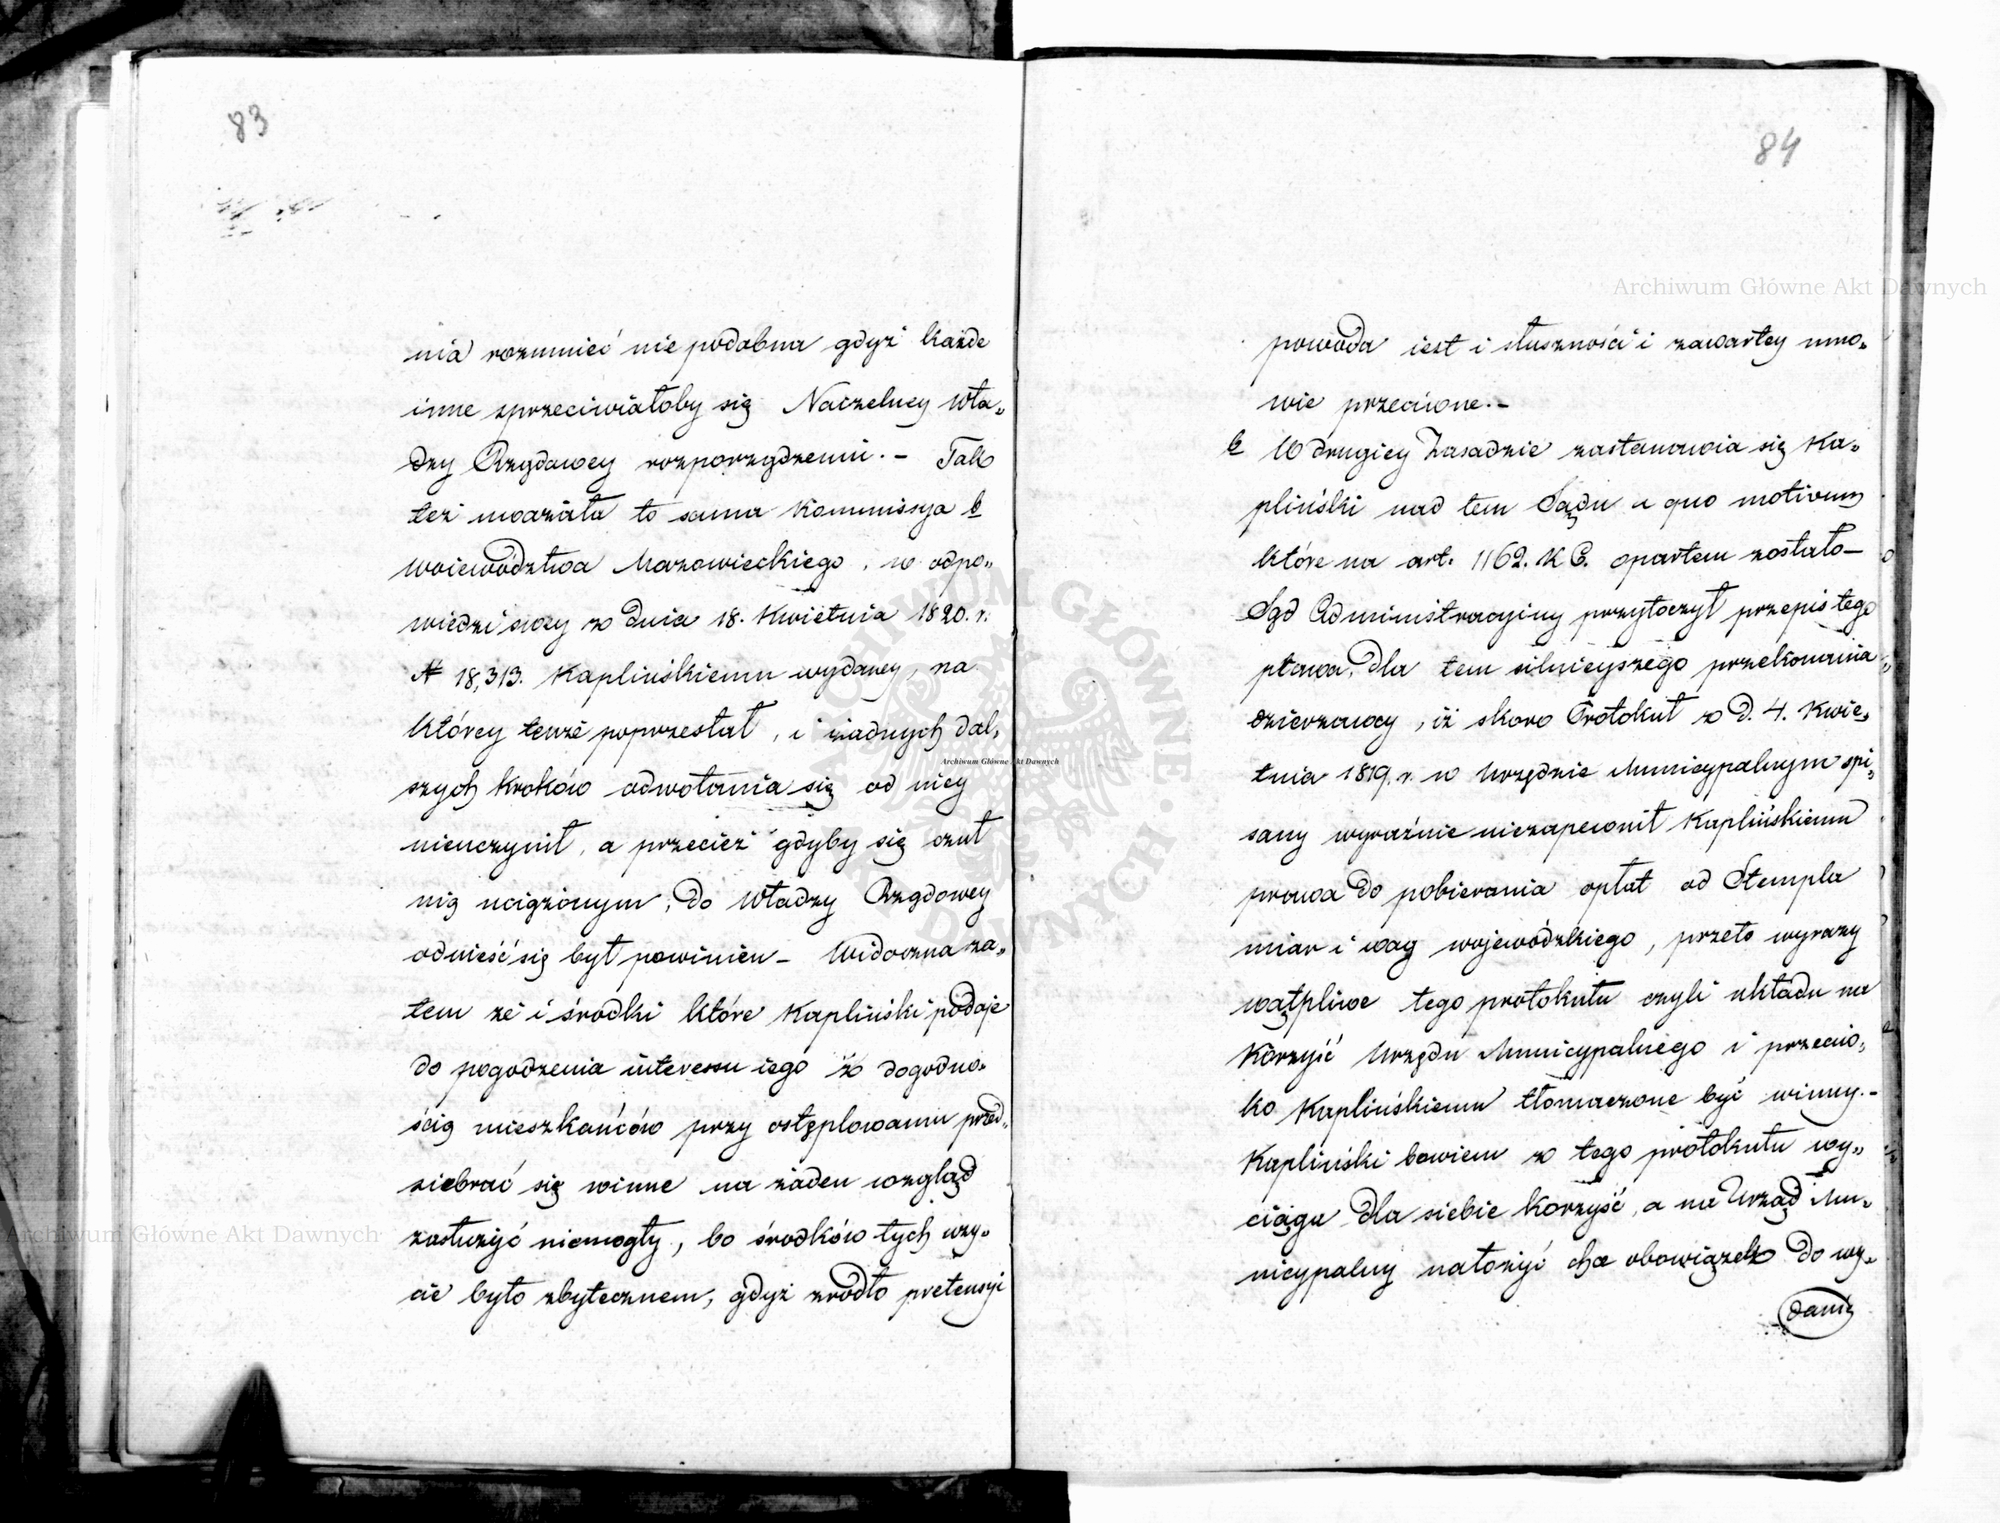 83
nia rozumieć nie podobna gdyż każde
inne sprzeciwiałoby się Naczelney Wła„
dzy Rządowey rozporządzeniu. – Tak
też uważała to sama Kommissya b
Woiewództwa Mazowieckiego, w odpo„
wiedzi swey z Dnia 18. Kwietnia 1820. r.
N 18,313. Kaplińskiemu wydaney, na
którey tenże poprzestał, i żadnych dal„
szych kroków odwołania się od niey
nieuczynił, a przecież gdyby się czuł
nią uciążonym, do Władzy Rządowey
odnieść się był powinien – Widoczna za„
tem że i środki które Kapliński podaje
do pogodzenia interessu iego z dogodno„
ścią mieszkańców przy ostęplowaniu przed„
siebrać się winne na żaden wzgląd
zasłużyć niemogły, bo środków tych uży„
cie było zbytecznem, gdyż źrodło pretensyi
84
powoda iest i słuszności i zawartey umo„
wie przeciwne. –
b W drugiey Zasadzie zastanawia się Ka„
pliński nad tem Sądu a quo motivum
które na art. 1162. K C. opartem zostało –
Sąd Administracyiny przytoczył przepis tego
prawa, dla tem silnieyszego przekonania
dzierzawcy, iż skoro Protokuł z D. 4. Kwie„
tnia 1819. r. w Urzędzie Municypalnym spi„
sany wyraźnie niezapewnił Kaplińskiemu
prawa do pobierania opłat od Stempla
miar i wag wojewódzkiego, przeto wyrazy
wątpliwe tego protokułu czyli układu na
Korzyść Urzędu Municypalnego i przeciw„
ko Kaplińskiemu tłomaczone być winny. –
Kapliński bowiem z tego protokułu wy„
ciąga dla siebie korzyść, a na Urząd Mu„
nicypalny nałożyć chce obowiązek do wy„
dania
Archiwum Główne Akt Dawnych
Archiwum Główne Akt Dawnych
Archiwum Główne Akt Dawnych
ARCHIWUM GŁÓWNE AKT DAWNYCH